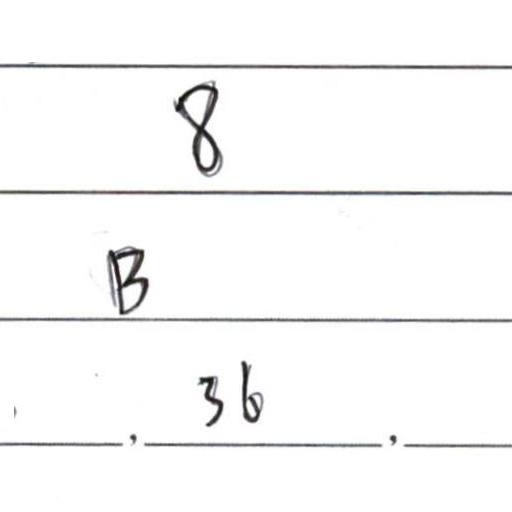 8
B
, 36 ,